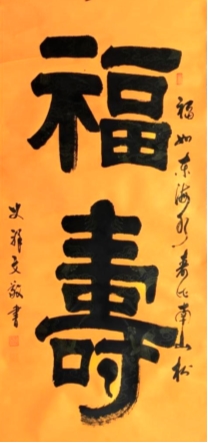 福壽
福如东海水壽比南山松
史祥文敬書